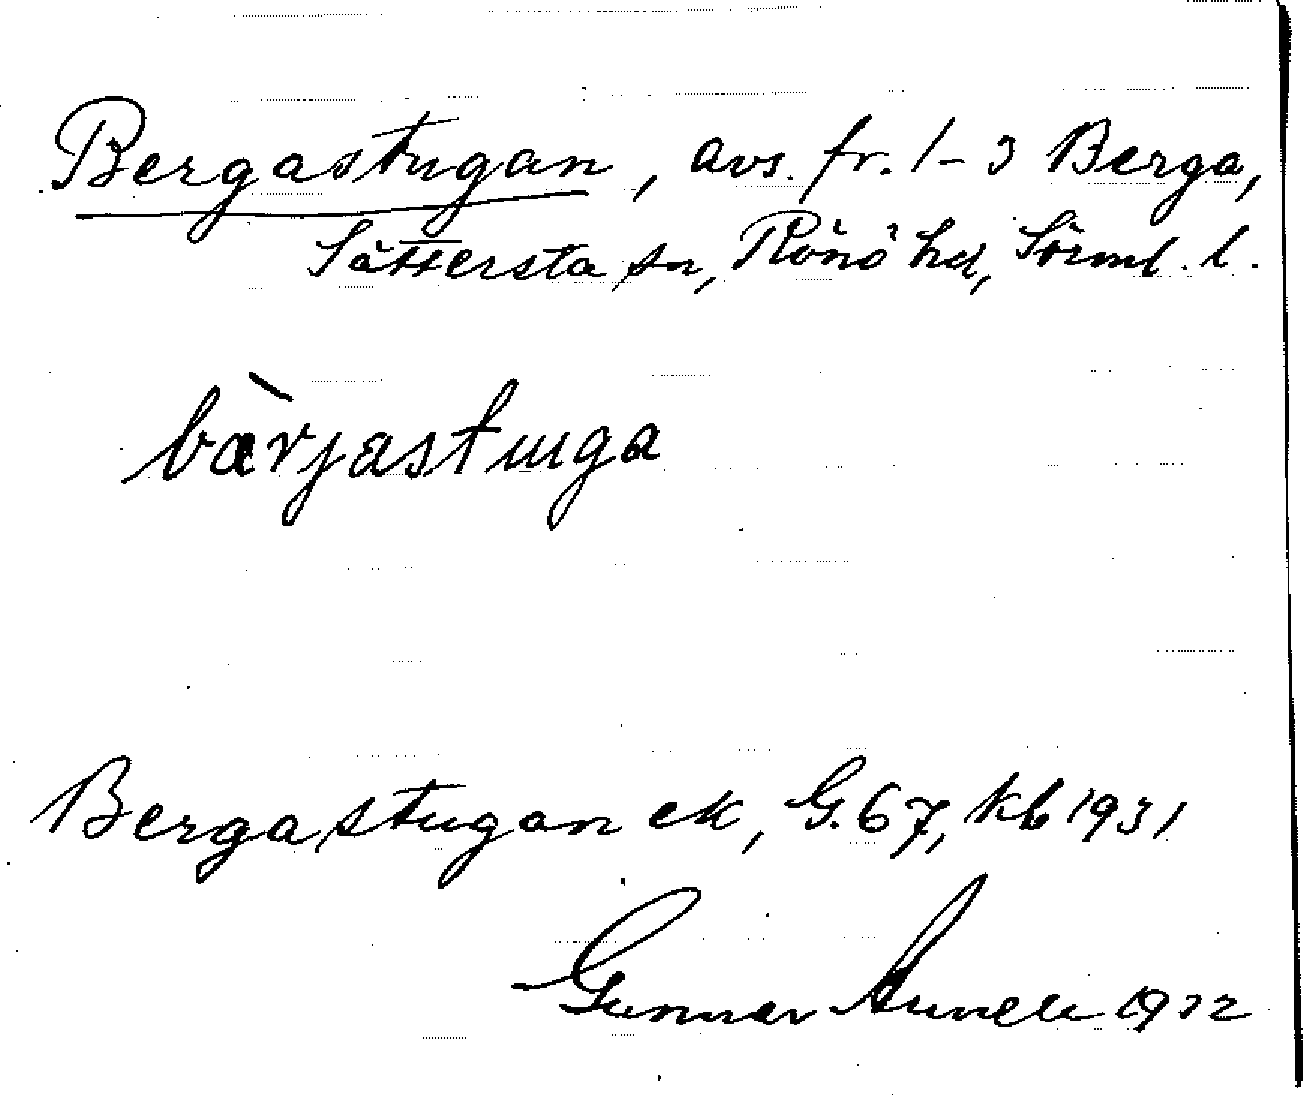 Bergastugan, avs. fr. 1-3 Berga,
Sättersta sn, Rönö hd, Sörml. l.
bàrjastuga
Bergastugan ek, G. 67, kb 1931
Gunnar 1932